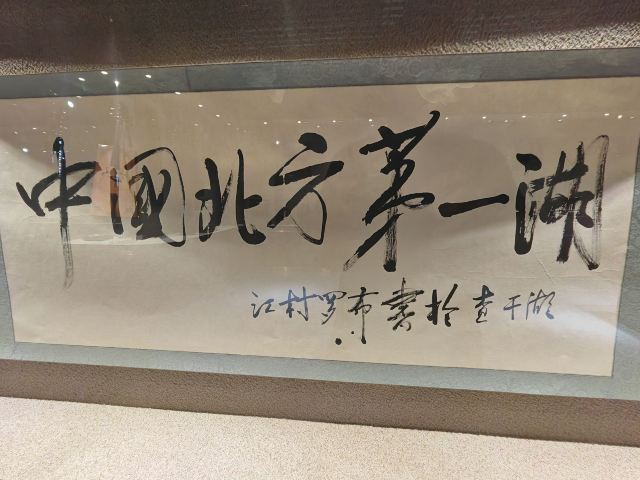 中國北方第一湖
江村罗布書於查干湖